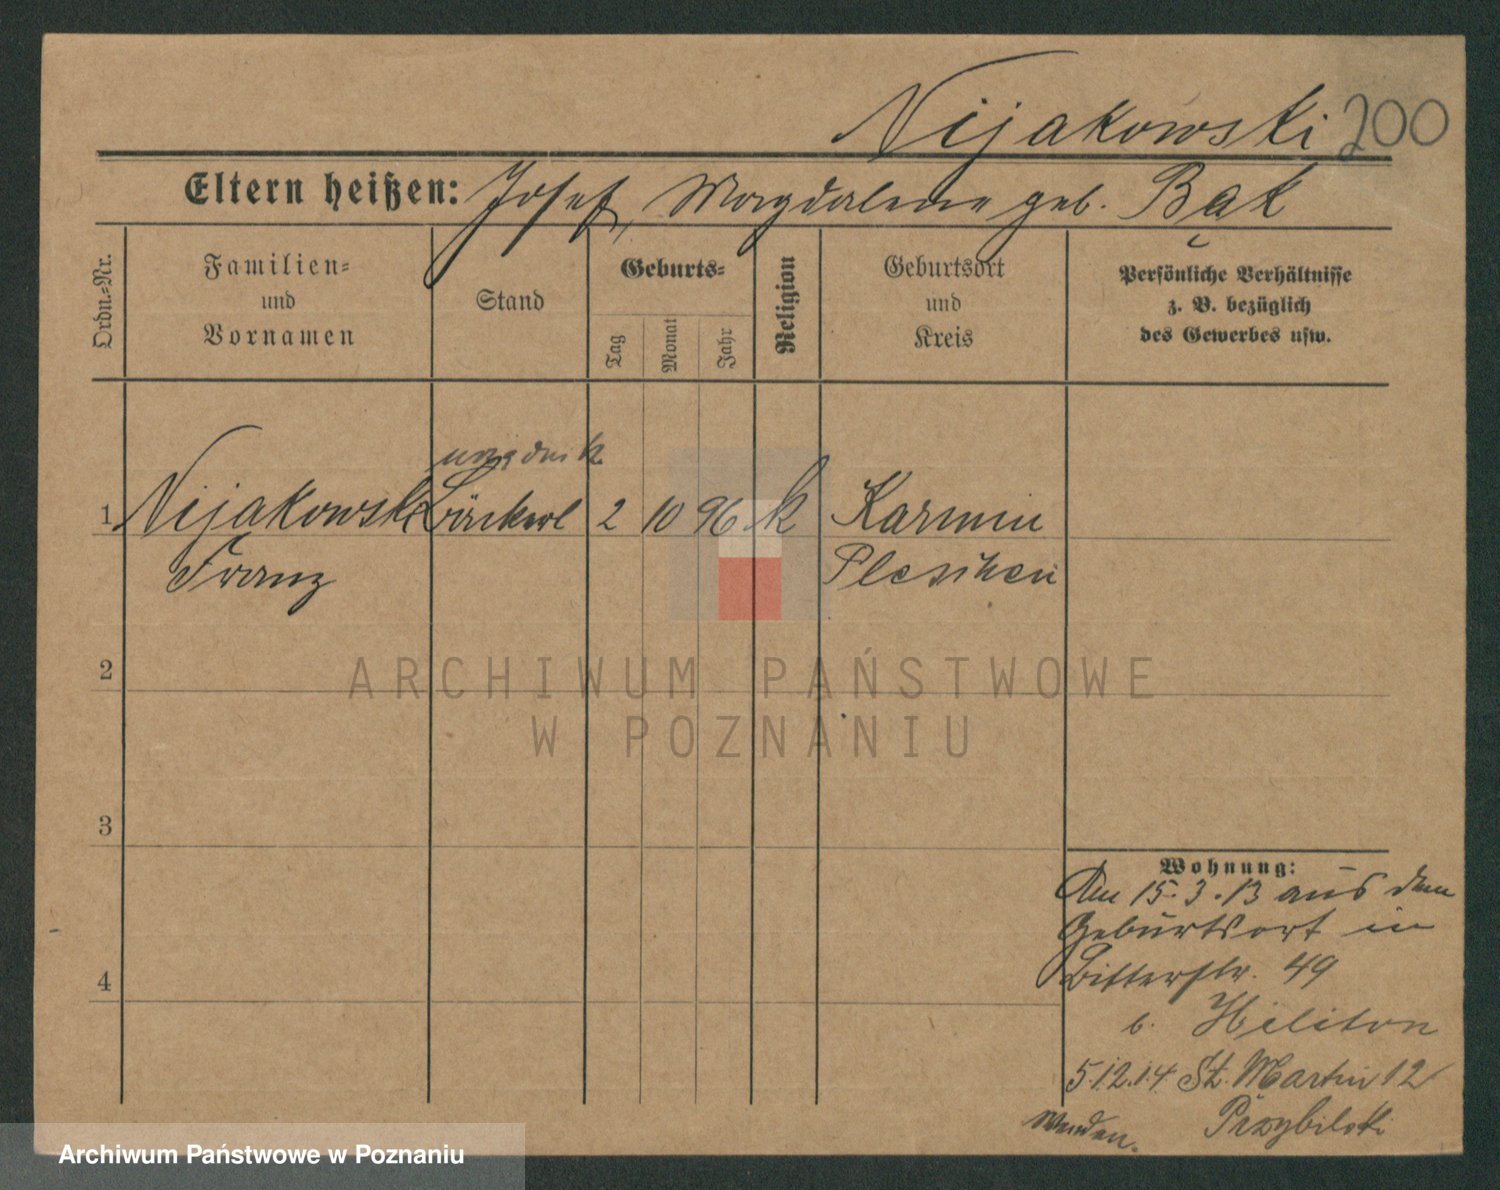 Nijakowski 200
Eltern heißen: Josef, Magdalena geb. Bąk
Ordn.-Nr.
Familien-
und
Vornamen
Stand
Geburts-
Tag
Monat
Jahr
Religion
Geburtsort
und
Kreis
Persönliche Verhältnisse
z. B. bezüglich
des Gewerbes usw.
urzędnik
1 Nijakowski 2 10 96 k Karmin
Franz Pleschen
2
ARCHIWUM PAŃSTWOWE
W POZNANIU
3
Wohnung:
Am 15.3.13 aus dem
Geburtsort in
Bitterstr. 49
b. Heliton
4
5.12.14 St. Martin 12
Przybilski
Wenden.
Archiwum Państwowe w Poznaniu